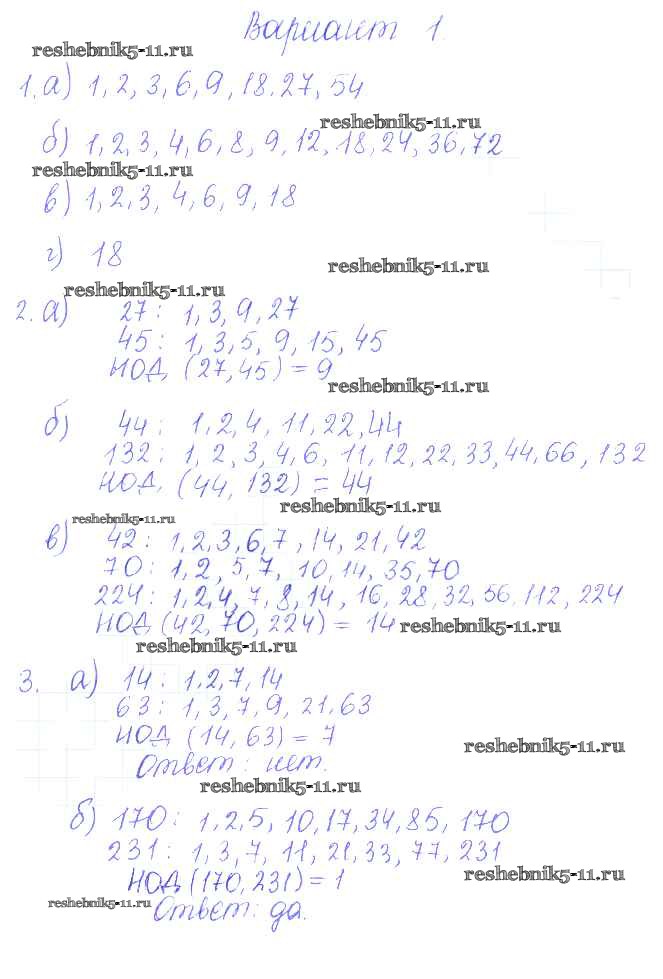 Вариант 1.
reshebnik5-11.ru
1. а) 1, 2, 3, 6, 9, 18. 27, 54
reshebnik5-11.ru
б) 1, 2, 3, 4, 6, 8, 9, 12, 18, 24, 36, 72
reshebnik5-11.ru
в) 1, 2, 3, 4, 6, 9, 18
г) 18
reshebnik5-11.ru
reshebnik5-11.ru
2. а) 27: 1, 3, 9, 27
45: 1, 3, 5, 9, 15, 45
НОД (27, 45) = 9
reshebnik5-11.ru
б) 44: 1, 2, 4, 11, 22, 44
132: 1, 2, 3, 4, 6, 11, 12, 22, 33, 44, 66, 132
НОД (44, 132) = 44
reshebnik5-11.ru
reshebnik5-11.ru
в) 42: 1, 2, 3, 6, 7, 14, 21, 42
70: 1, 2, 5, 7, 10, 14, 35, 70
224: 1, 2, 4, 7, 8, 14, 16, 28, 32, 56, 112, 224
НОД (42, 70, 224) = 14 reshebnik5-11.ru
reshebnik5-11.ru
3. а) 14: 1, 2, 7, 14
63: 1, 3, 7, 9, 21, 63
НОД (14, 63) = 7
reshebnik5-11.ru
Ответ: нет.
reshebnik5-11.ru
б) 170: 1, 2, 5, 10, 17, 34, 85, 170
231: 1, 3, 7, 11, 21, 33, 77, 231
НОД (170, 231) = 1 reshebnik5-11.ru
reshebnik5-11.ru
Ответ: да.